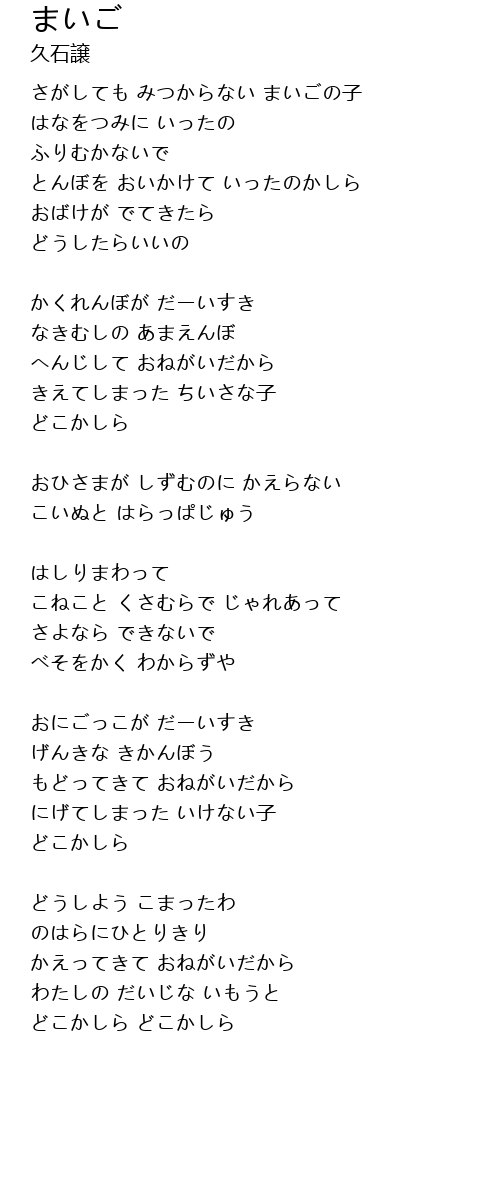 まいご
久石譲
さがしても みつからない まいごの子
はなをつみに いったの
ふりむかないで
とんぼを おいかけて いったのかしら
おばけが でてきたら
どうしたらいいの
かくれんぼが だーいすき
なきむしの あまえんぼ
へんじして おねがいだから
きえてしまった ちいさな子
どこかしら
おひさまが しずむのに かえらない
こいぬと はらっぱじゅう
はしりまわって
こねこと くさむらで じゃれあって
さよなら できないで
べそをかく わからずや
おにごっこが だーいすき
げんきな きかんぼう
もどってきて おねがいだから
にげてしまった いけない子
どこかしら
どうしよう こまったわ
のはらにひとりきり
かえってきて おねがいだから
わたしの だいじな いもうと
どこかしら どこかしら